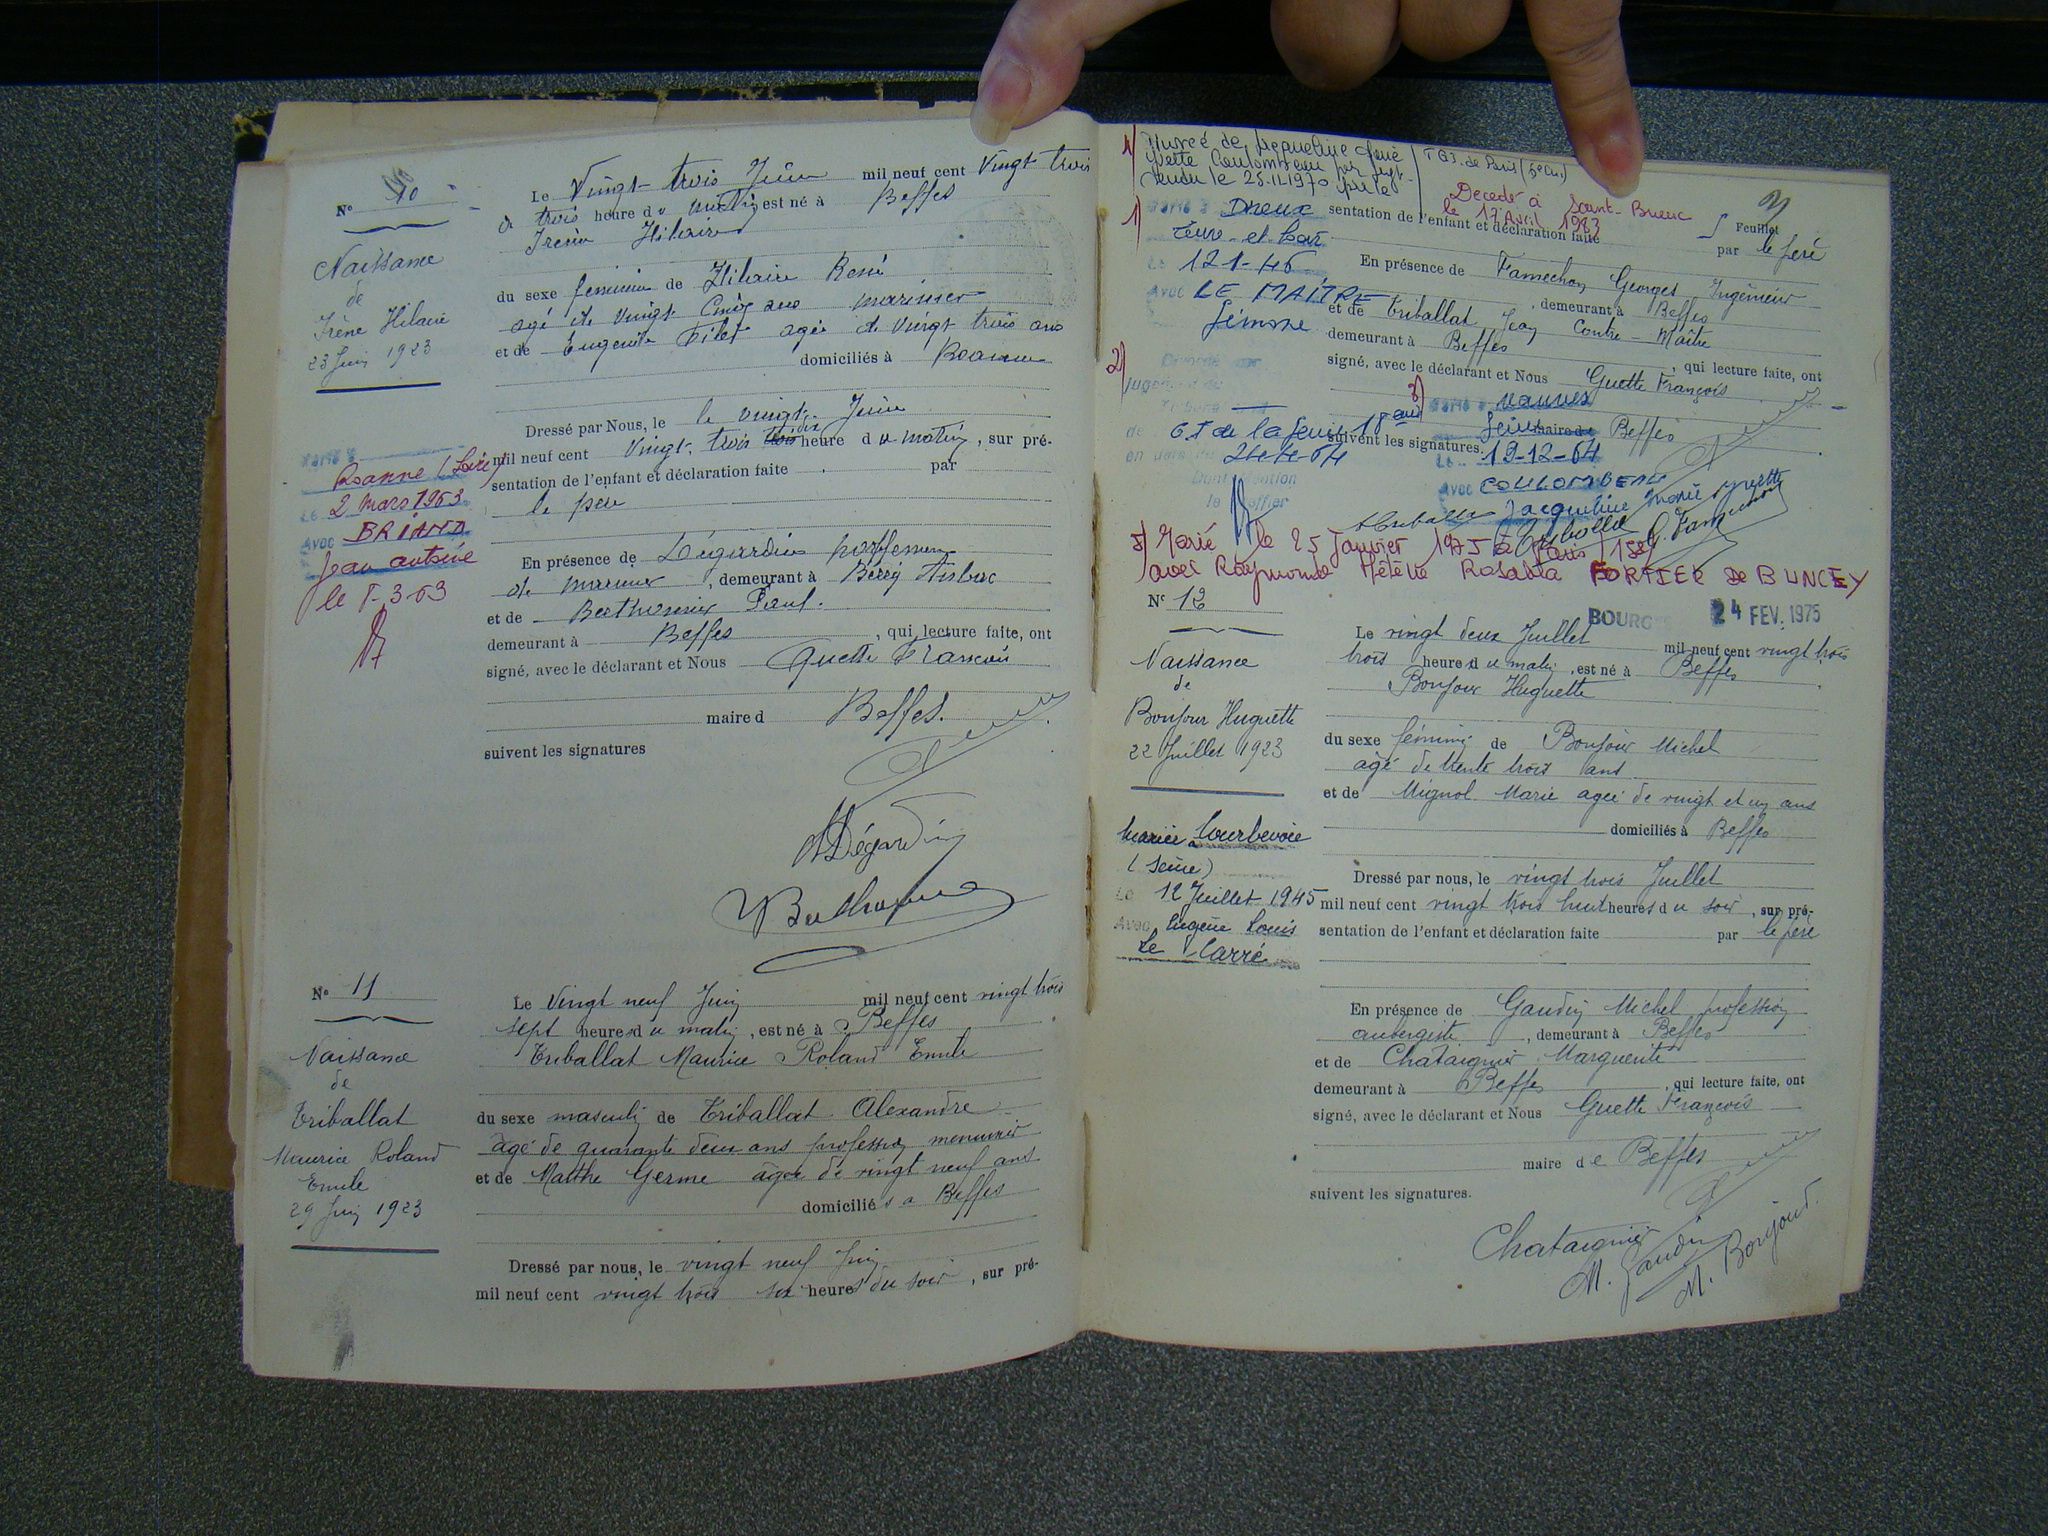 N° 10
Naissance
de
Irène Hilaire
23 Juin 1923
Le Vingt trois Juin mil neuf cent Vingt trois
à trois heure du matin est né à Beffes
Irène Hilaire
du sexe féminin de Hilaire René
agé de vingt Cinq ans marinier
et de Eugenie agée de vingt trois ans
domiciliés à Roanne
Dressé par Nous, le le vingt Juin
mil neuf cent Vingt trois dix heure du matin, sur pré-
sentation de l'enfant et déclaration faite par
le père
En présence de Dégardin
, demeurant à
et de Paul.
demeurant à Beffes, qui lecture faite, ont
signé, avec le déclarant et Nous Guette François
maire d Beffes.
suivent les signatures
Roanne (Loire)
Le 2 mars 1963
Avec BRIAND
Jean antoine
ADégardin
N° 11
Naissance
de
Triballat
Maurice Roland
Emile
29 Juin 1923
Le Vingt neuf Juin mil neuf cent vingt trois
sept heures du matin, est né à Beffes
Triballat Maurice Roland Emile
du sexe masculin de Triballat Alexandre
agé de quarante deux ans profession menuisier
et de Marthe Germe agée de vingt neuf ans
domiciliés a Beffes
Dressé par nous, le vingt neuf Juin
mil neuf cent vingt trois six heures du soir, sur pré-
4) Divorcé de Jacqueline Marie
Yvette Coulombeau par jugt.
rendu le 25.11.1970 par le
T G I. de Paris
Decedé à Saint-Brieuc
le 17 Avril 1983
Feuillet
1) Dreux
Eure-et-Loir
Le 12-1-46
Avec LE MAÎTRE
Simone
sentation de l'enfant et déclaration faite par le père
En présence de Famechon Georges Ingénieur
, demeurant à Beffes
et de Triballat Jean Contre-Maître
demeurant à Beffes, qui lecture faite, ont
signé, avec le déclarant et Nous Guette François
maire de Beffes
suivent les signatures.
2) Divorcé par
jugement du
Tribunal
de G.I de la Seine 18e
en date du
Dont mention
le Greffier
3) Vanves
Seine
Le 19-12-64
Avec COULOMBEAU
Jacqueline Marie Yvette
ATriballat
5) Marié le 25 Janvier 1975 à Paris (15e)
avec Raymonde Hélène Rosalba FORTIER de BUNCEY
BOURGES 24 FEV. 1975
N° 12
Naissance
de
Bonjour Huguette
22 Juillet 1923
Le vingt deux Juillet mil neuf cent vingt trois
trois heures du matin, est né à Beffes
Bonjour Huguette
du sexe féminin de Bonjour Michel
agé de trente trois ans
et de Mignol Marie agée de vingt et un ans
domiciliés à Beffes
Mariée à Courbevoie
(Seine)
Le 12 Juillet 1945
Avec Eugène Louis
Le Carré
Dressé par nous, le vingt trois Juillet
mil neuf cent vingt trois huit heures du soir, sur pré-
sentation de l'enfant et déclaration faite par le père
En présence de Gaudin Michel profession
aubergiste, demeurant à Beffes
et de Chataignier Marguerite
demeurant à Beffes, qui lecture faite, ont
signé, avec le déclarant et Nous Guette François
maire de Beffes
suivent les signatures.
Chataignier
M. Gaudin
M. Bonjour.